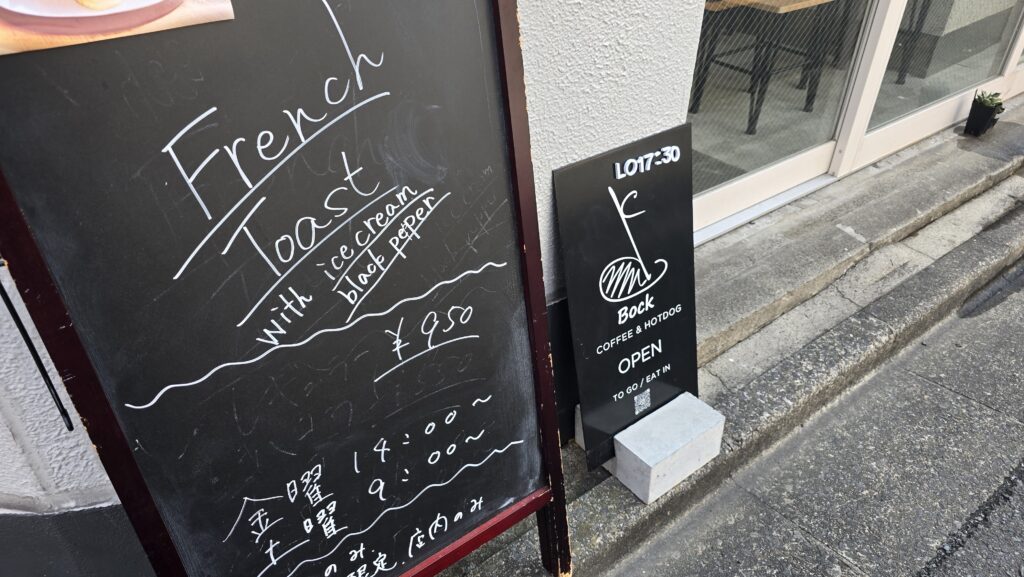 French
Toast
with ice cream
black peper
¥950
金曜 14:00～
土曜 9:00～
のみ
限定. 店内のみ
LO17:30
Bock
COFFEE & HOTDOG
OPEN
TO GO / EAT IN